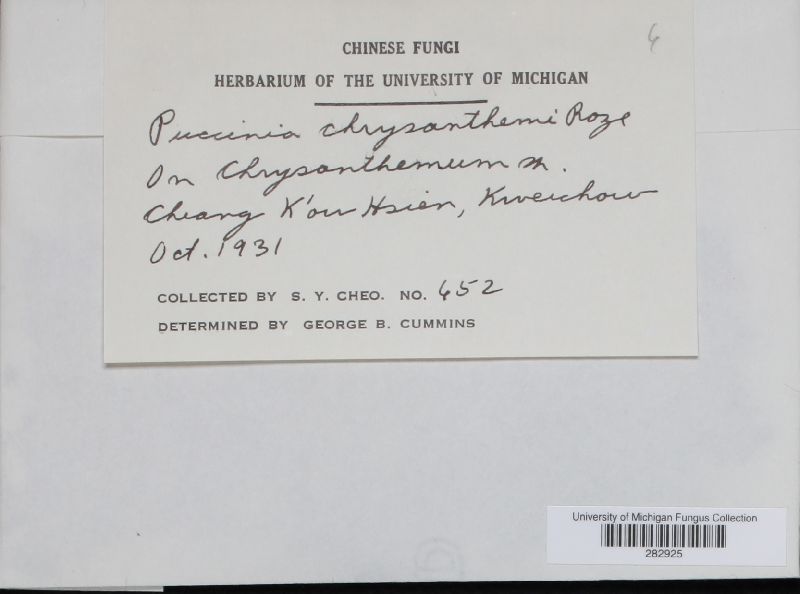 6
CHINESE FUNGI
HERBARIUM OF THE UNIVERSITY OF MICHIGAN
Puccinia chrysanthemi Roze
On Chrysanthemum
Chiang K'ou Hsien, Kweichow
Oct. 1931
COLLECTED BY S. Y. CHEO. NO. 652
DETERMINED BY GEORGE B. CUMMINS
University of Michigan Fungus Collection
282925